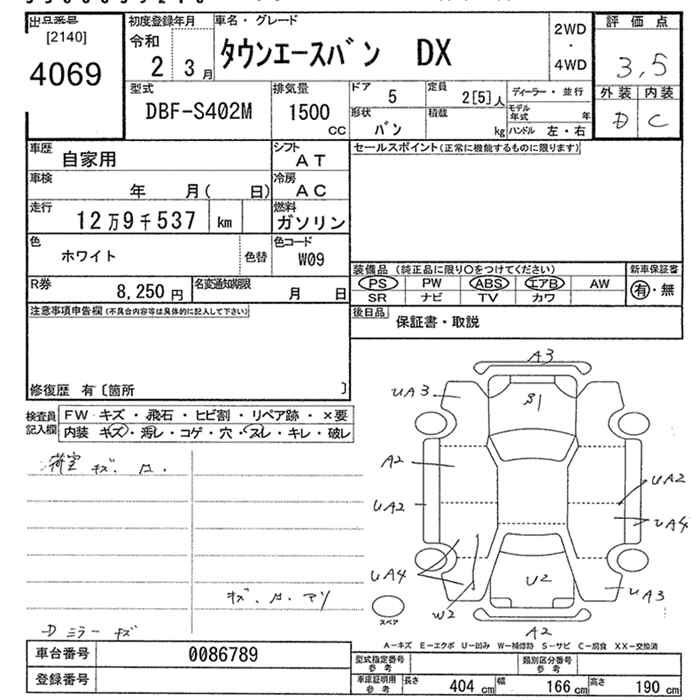 出品番号
[2140]
4069
初度登録年月
令和
2 3月
車名・グレード
タウンエースバン DX
2WD
・
4WD
評価点
3,5
外装 内装
D C
型式
DBF-S402M
排気量
1500
CC
ドア
5
定員
2[5]人
形状
バン
積載
kg
ディーラー・並行
モデル年式 年
ハンドル 左・右
車歴
自家用
シフト
AT
車検
年 月( 日)
冷房
AC
走行
12万9千537 km
燃料
ガソリン
色
ホワイト
色替
色コード
W09
R券
8,250円
名変通知期限
月 日
セールスポイント(正常に機能するものに限ります)
装備品(純正品に限り○をつけてください)
新車保証書
PS PW ABS エアB AW
SR ナビ TV カワ
有・無
後日品
保証書・取説
注意事項申告欄(不具合内容等は具体的に記入して下さい)
修復歴 有〔箇所 〕
検査員
記入欄
FW キズ・飛石・ヒビ割・リペア跡・×要
内装 キズ・汚レ・コゲ・穴・スレ・キレ・破レ
荷室 キズ.
D ミラー キズ
A3
UA3
S1
A2
UA2
UA2
UA4
UA4
W2
U2
UA3
A2
スペア
A-キズ E-エクボ U-凹み W-補修跡 S-サビ C-腐食 XX-交換済
車台番号
0086789
登録番号
型式指定番号
参考
類別区分番号
参考
車庫証明用
参考
長さ 404 cm
幅 166 cm
高さ 190 cm